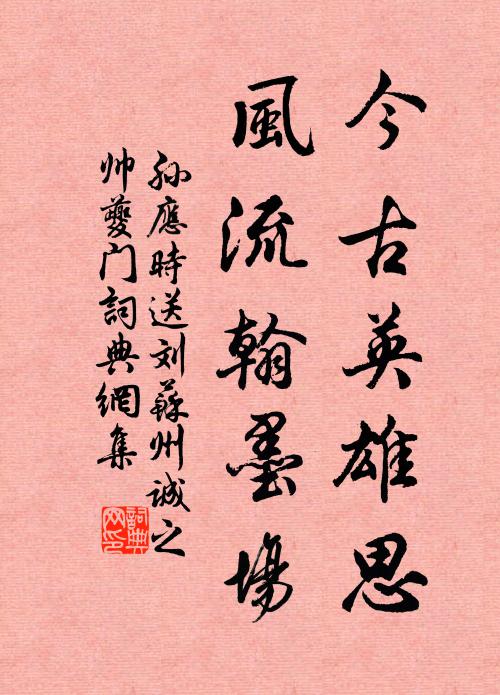 今古英雄思
風流翰墨場
孫應時送刘蘇州誠之
帅夔门詞典網集
詞典网印